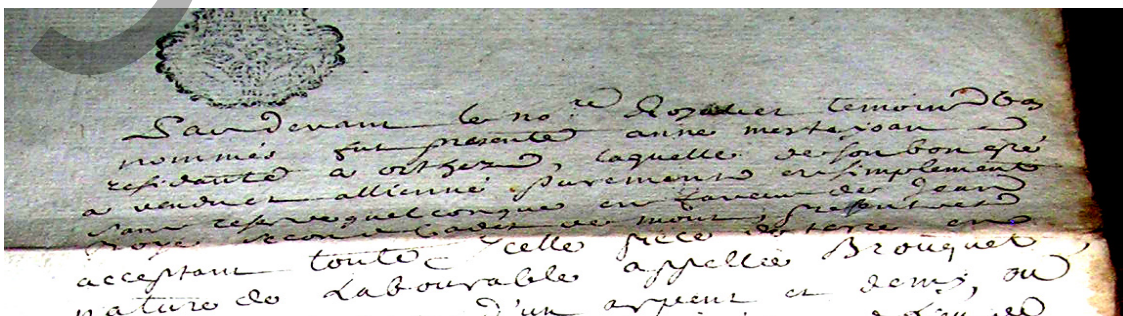 Par devant le no.re Royal et temoins bas
nommés fut presente anne mertejoan
residante a orthez, laquelle de son bon gré
a vendu et allienné purement et simplement
sans reserve quelconque en faveur de Jean
second Cadet de mont, present et
acceptant toute celle piece de terre en
nature de Labourable appellée Broüquet,
d'un arpent et demy, ou